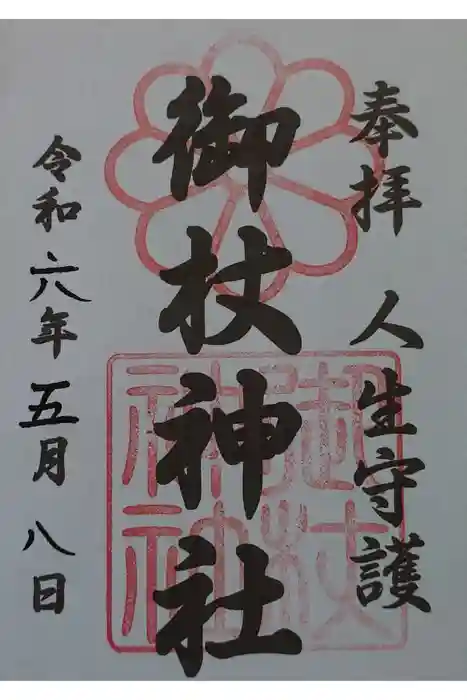 奉拝 人生守護
御杖神社
令和六年五月八日
御杖
神社